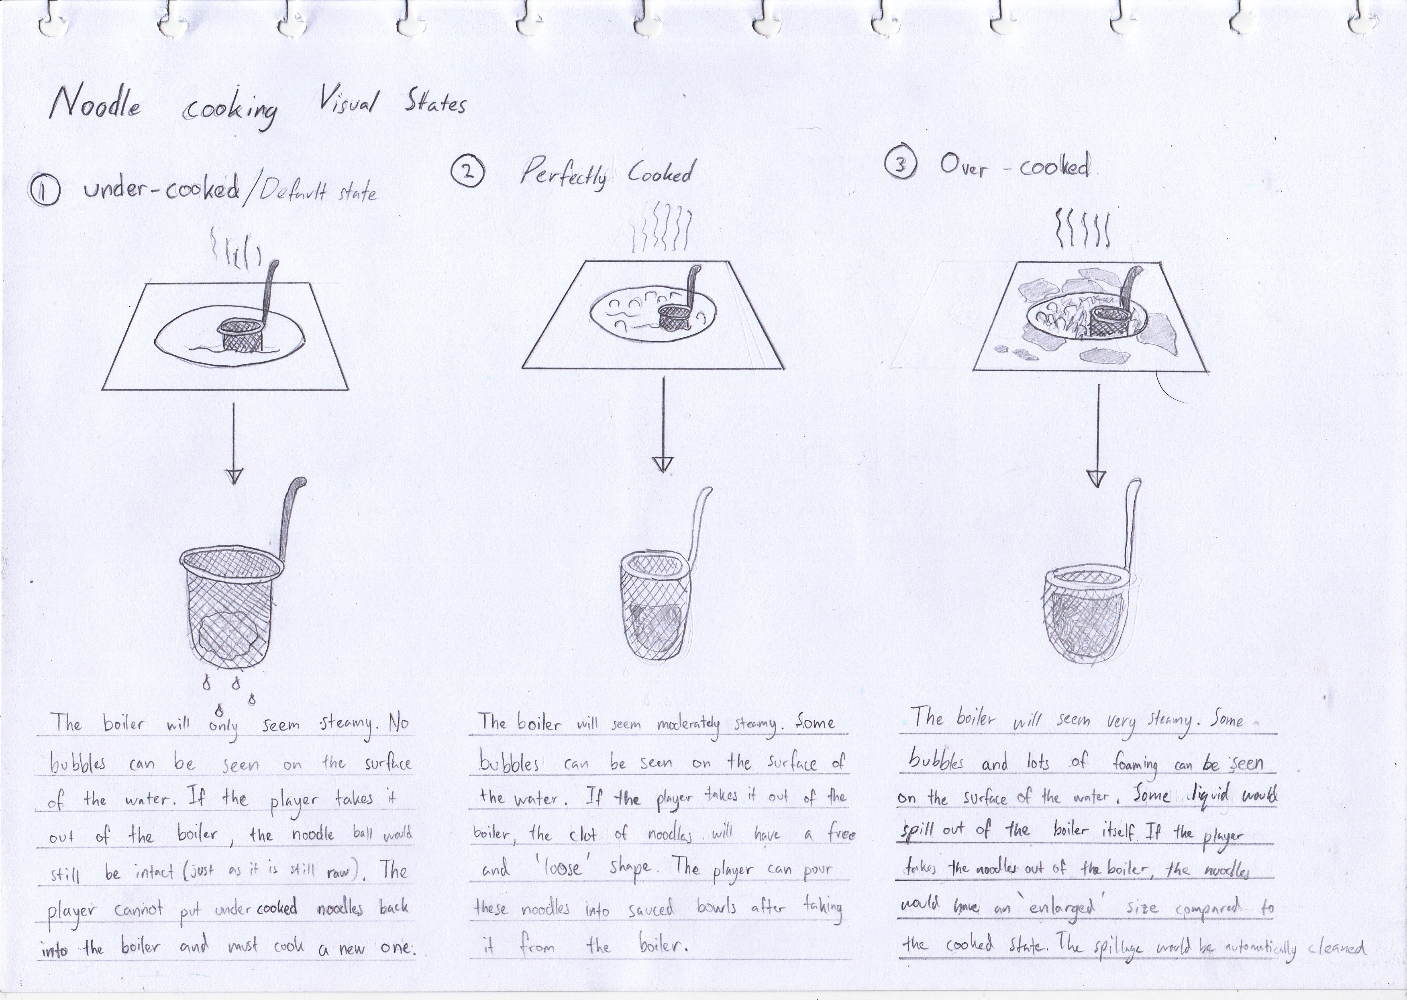 Noodle cooking Visual States
① under-cooked/Default state
The boiler will only seem steamy. No
bubbles can be seen on the surface
of the water. If the player takes it
out of the boiler, the noodle ball would
still be intact (just as it is still raw). The
player cannot put undercooked noodles back
into the boiler and must cook a new one.
② Perfectly Cooked
The boiler will seem moderately steamy. Some
bubbles can be seen on the surface of
the water. If the player takes it out of the
boiler, the clot of noodles will have a free
and 'loose' shape. The player can pour
these noodles into sauced bowls after taking
it from the boiler.
③ Over-cooked
The boiler will seem very steamy. Some
bubbles and lots of foaming can be seen
on the surface of the water. Some liquid would
spill out of the boiler itself. If the player
takes the noodles out of the boiler, the noodles
would have an 'enlarged' size compared to
the cooked state. The spillage would be automatically cleaned